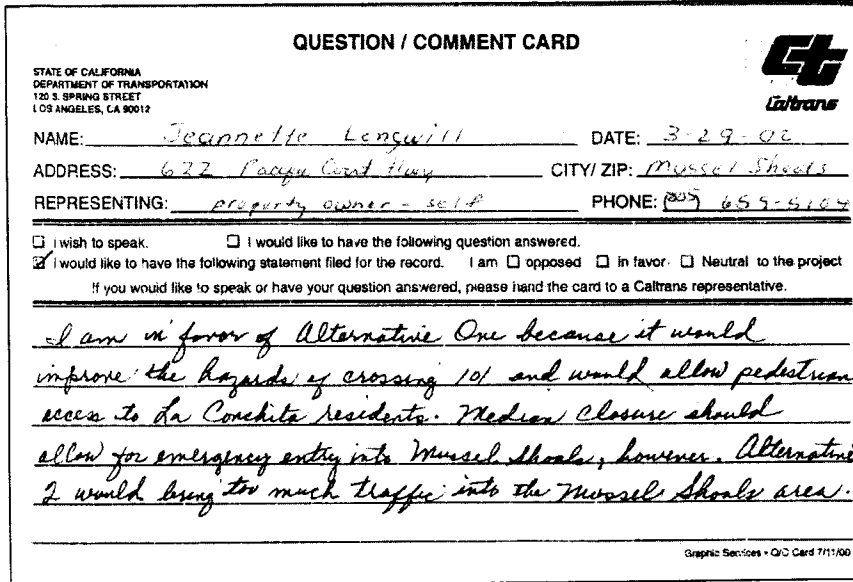 QUESTION / COMMENT CARD
STATE OF CALIFORNIA
DEPARTMENT OF TRANSPORTATION
120 S. SPRING STREET
LOS ANGELES, CA 90012
Caltrans
NAME: Jeannette Longwill DATE: 3-29-02
ADDRESS: 622 Pacific Coast Hwy CITY/ ZIP: Mussel Shoals
REPRESENTING: property owner - self PHONE: (805)
☐ I wish to speak. ☐ I would like to have the following question answered.
☑ I would like to have the following statement filed for the record. I am ☐ opposed ☐ in favor ☐ Neutral to the project
If you would like to speak or have your question answered, please hand the card to a Caltrans representative.
I am in favor of Alternative One because it would
improve the hazards of crossing 101 and would allow pedestrian
access to La Conchita residents. Median Closure should
allow for emergency entry into Mussel Shoals, however. Alternative
2 would bring too much traffic into the Mussel Shoals area.
Graphic Services • Q/C Card 7/11/00